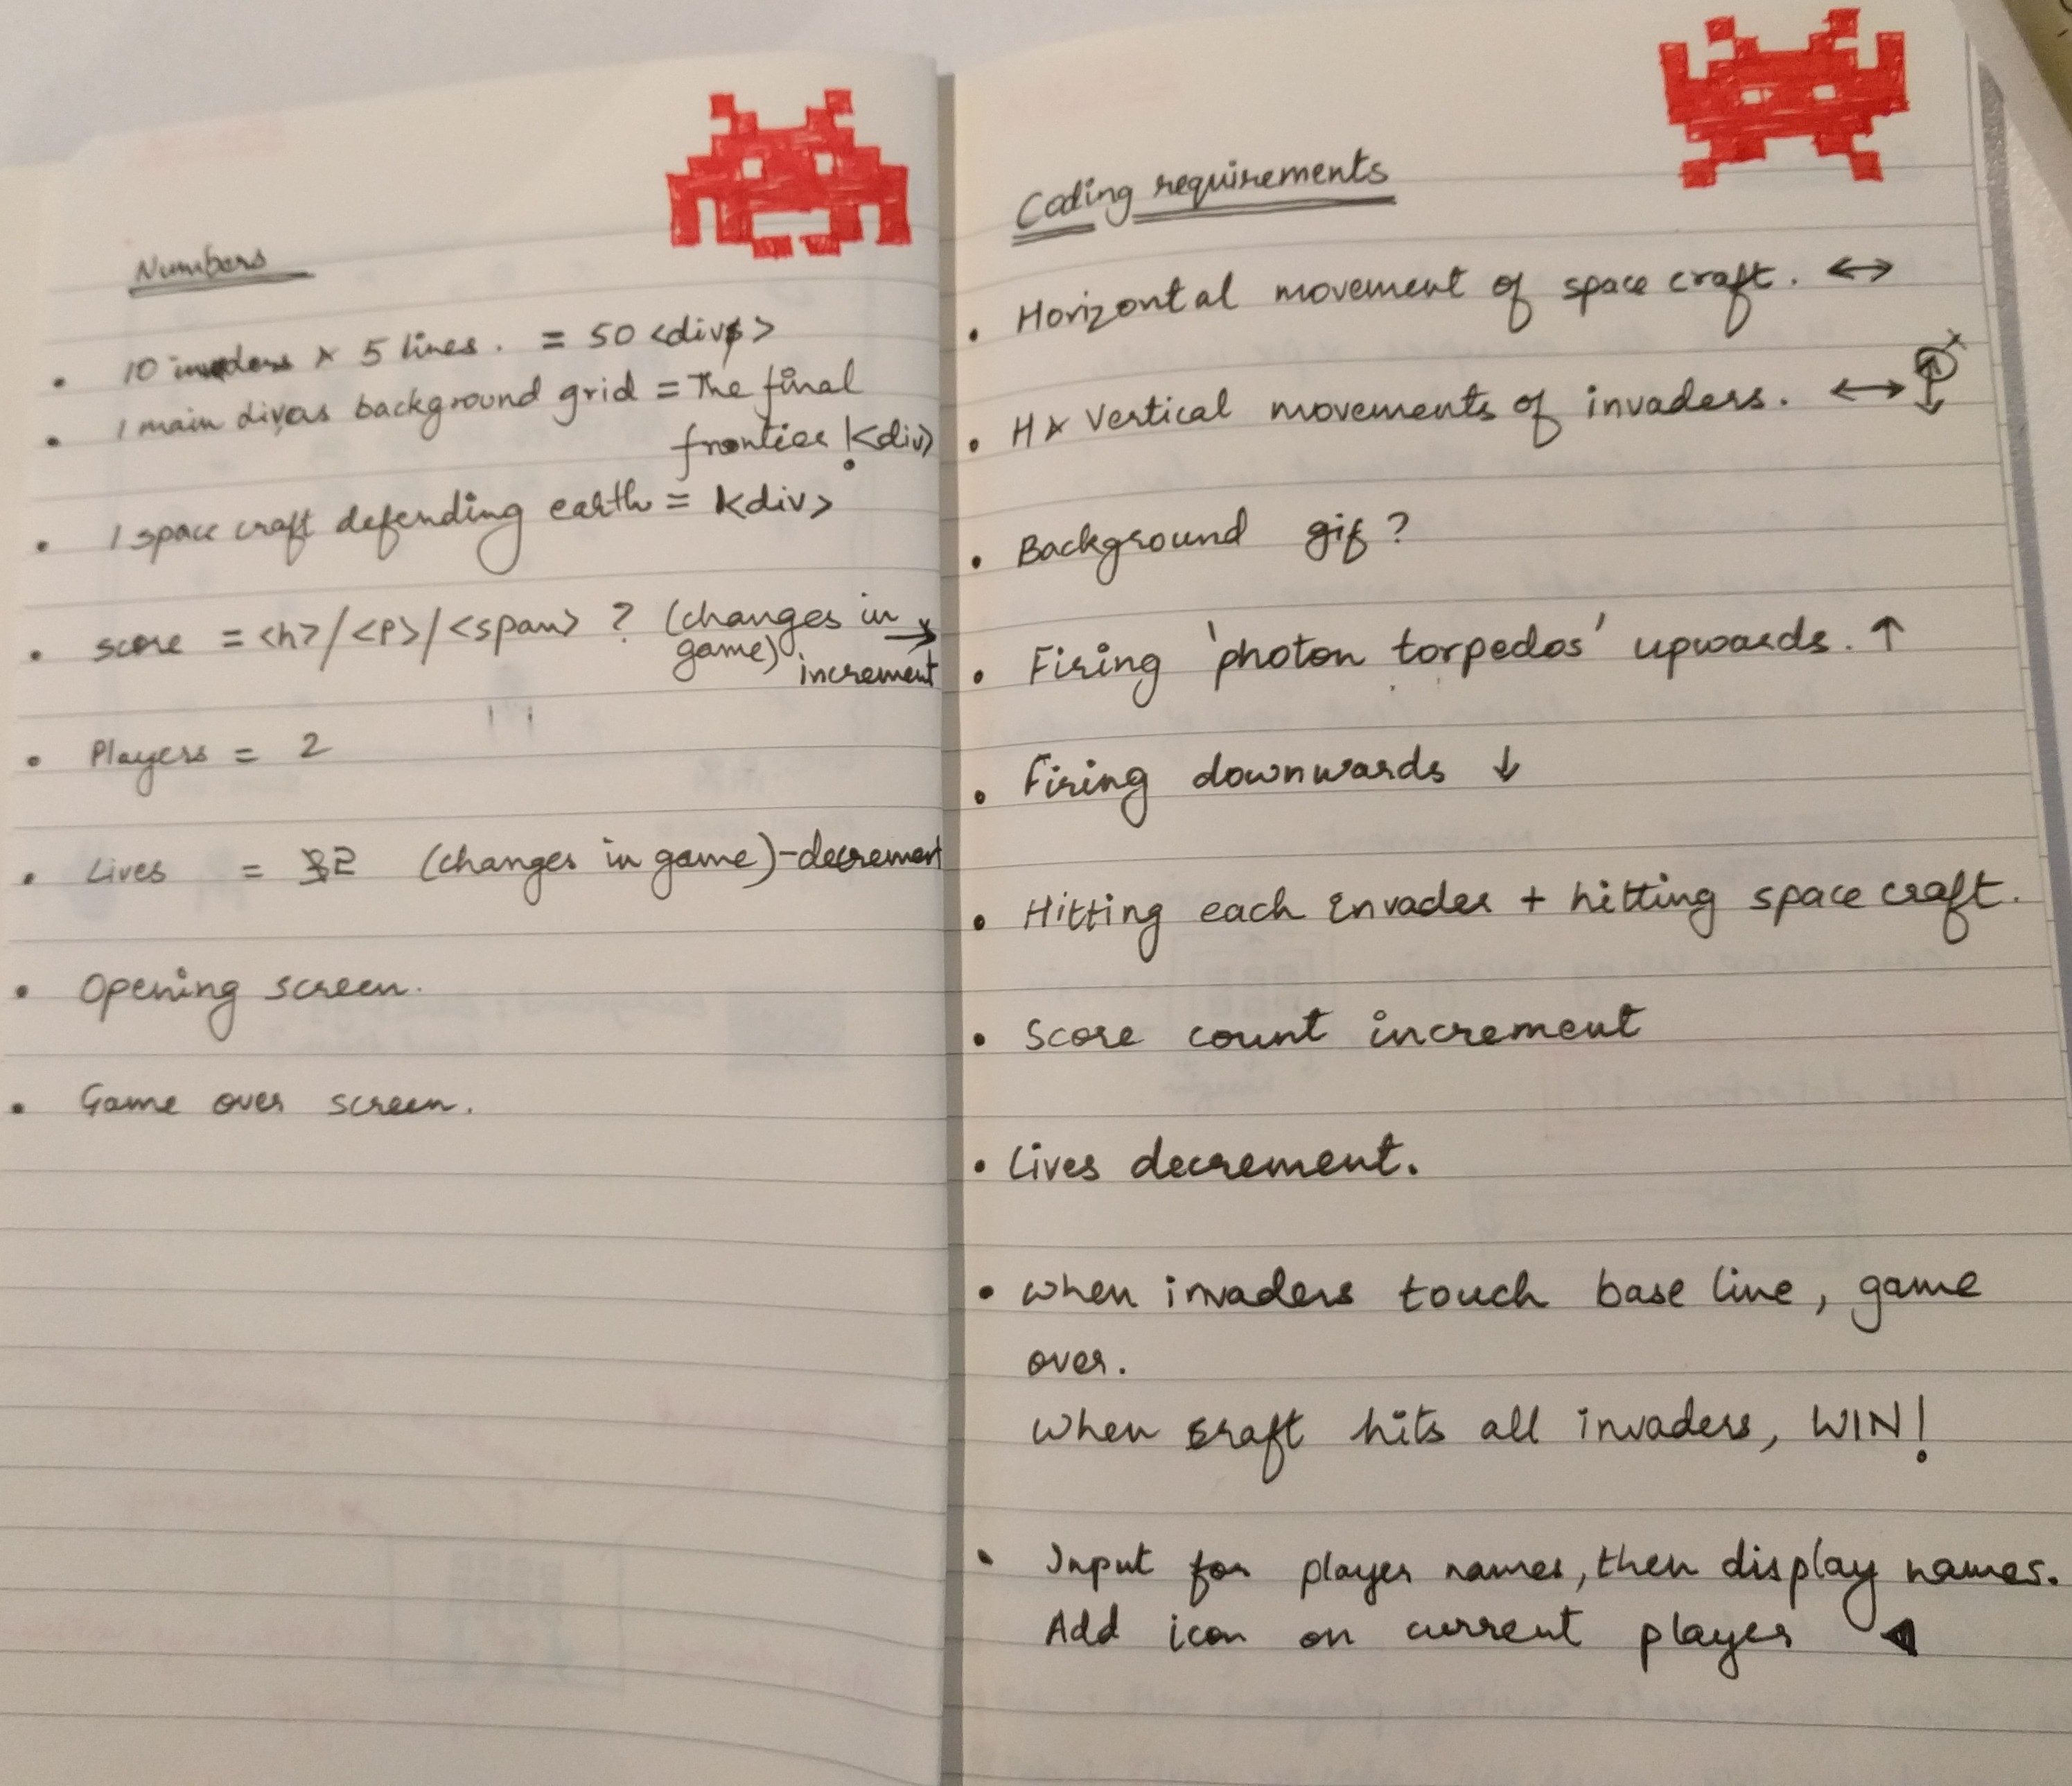 Numbers
• 10 invaders x 5 lines. = 50 <divs>
• 1 main div as background grid = The final
frontier! <div>
• 1 space craft defending earth = <div>
• score = <h>/<p>/<span> ? (changes in
game) → increment
• Players = 2
• Lives = 2 (changes in game) - decrement
• Opening screen.
• Game over screen.
Coding requirements
• Horizontal movement of space craft. ↔
• H & Vertical movements of invaders. ↔ ↕
• Background gif?
• Firing 'photon torpedos' upwards. ↑
• Firing downwards ↓
• Hitting each invader + hitting space craft.
• Score count increment
• Lives decrement.
• When invaders touch base line, game
over.
When craft hits all invaders, WIN!
• Input for player names, then display names.
Add icon on current player ◀